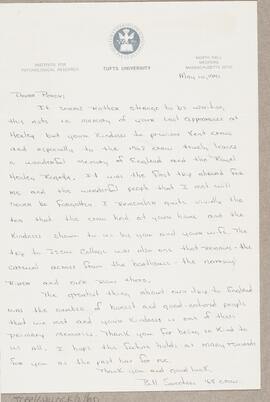 INSTITUTE FOR
PSYCHOLOGICAL RESEARCH
TUFTS UNIVERSITY
NORTH HALL
MEDFORD
MASSACHUSETTS 02155
May 10, 1981
It seems rather strange to be writing
this note in memory of your last appearance at
Henley but your kindness to previous Kent crews
and especially to the 1968 crew truely leaves
a wonderful memory of England and the Royal
Henley Regatta. It was the first trip abroad for
me and the wonderful people that I met will
never be forgotten. I remember quite vividly the
tea that the crew held at your home and the
kindness shown to us by you and your wife. The
trip to College was also one that remains - the
carnival across from the boathouse - the narrow
river and our row there.
The greatest thing about our trip to England
was the number of honest and good-natured people
that we met and your kindness is one of these
primary memories. Thank you for being so kind to
us all. I hope the future holds as many rewards
for you as the past has for me.
Thank you and good luck.
Bill '68 crew